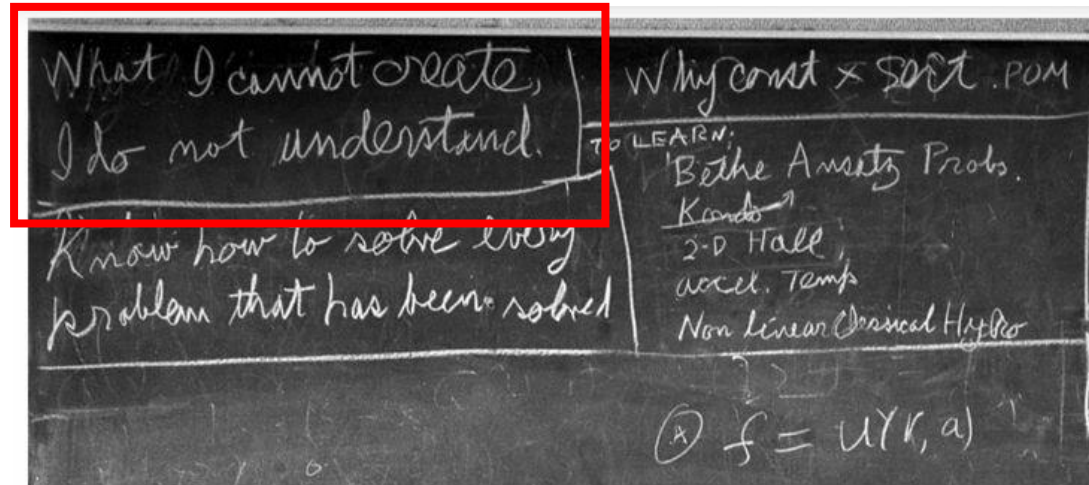 What I cannot create,
I do not understand.
Know how to solve every
problem that has been solved
Why const × sort . POM
TO LEARN:
Bethe Ansatz Probs.
Kondo
2-D Hall
accel. Temp
Non linear Classical Hydro
(A) f = u(r, a)